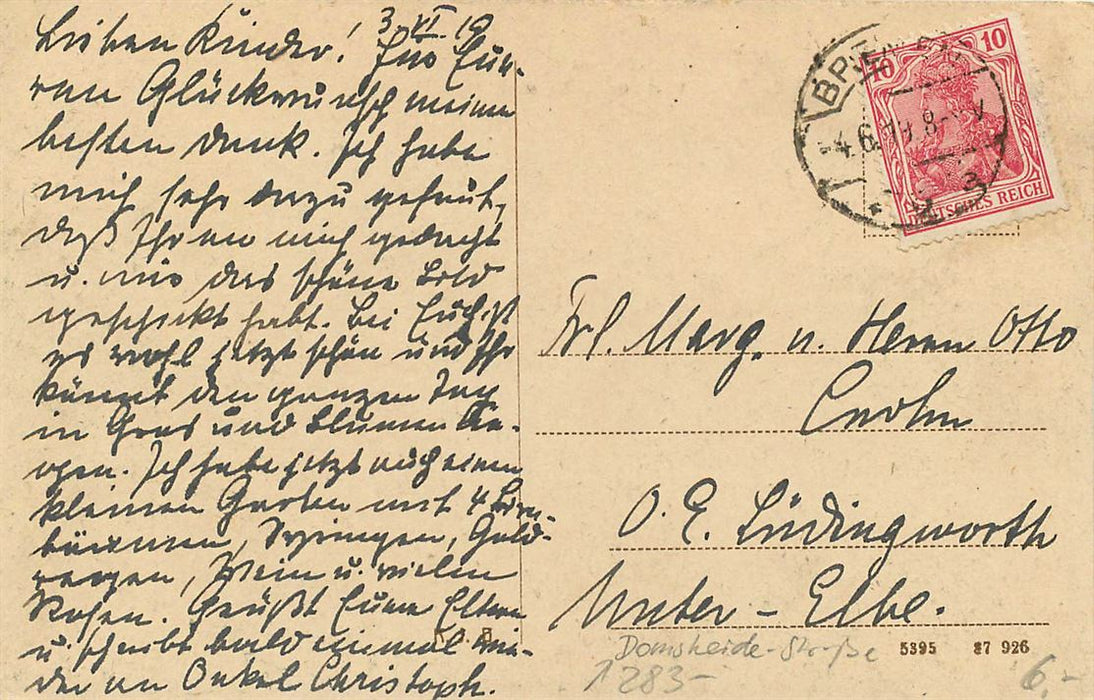 Lieben Kinder! 3.VI.19
Für Eue-
ren Glückwunsch meinen
besten Dank. Ich habe
mich sehr dazu gefreut,
daß Ihr an mich gedacht
u. mir das schöne Bild
geschickt habt. Bei Euch ist
es wohl jetzt schön und Ihr
könnt den ganzen Tag
in Gras und Blumen
Ich habe jetzt auch einen
kleinen Garten mit 4 Birn-
bäumen, Syringen, Gold-
regen, Wein u. vielen
Rosen. Grüßt Eure Eltern
u. schreibt bald einmal wie-
der an Onkel Christoph.
10 10
BREMEN
4.6.19. 8-9 V
DEUTSCHES REICH
Frl. Marg. u. Herrn Otto
O. E. Lüdingworth
Unter-Elbe.
Domsheide-Straße 5395 87 926
1283- 6-